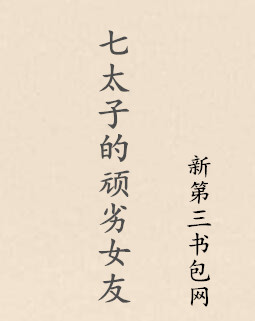 七太子的顽劣女友
新第三书包网